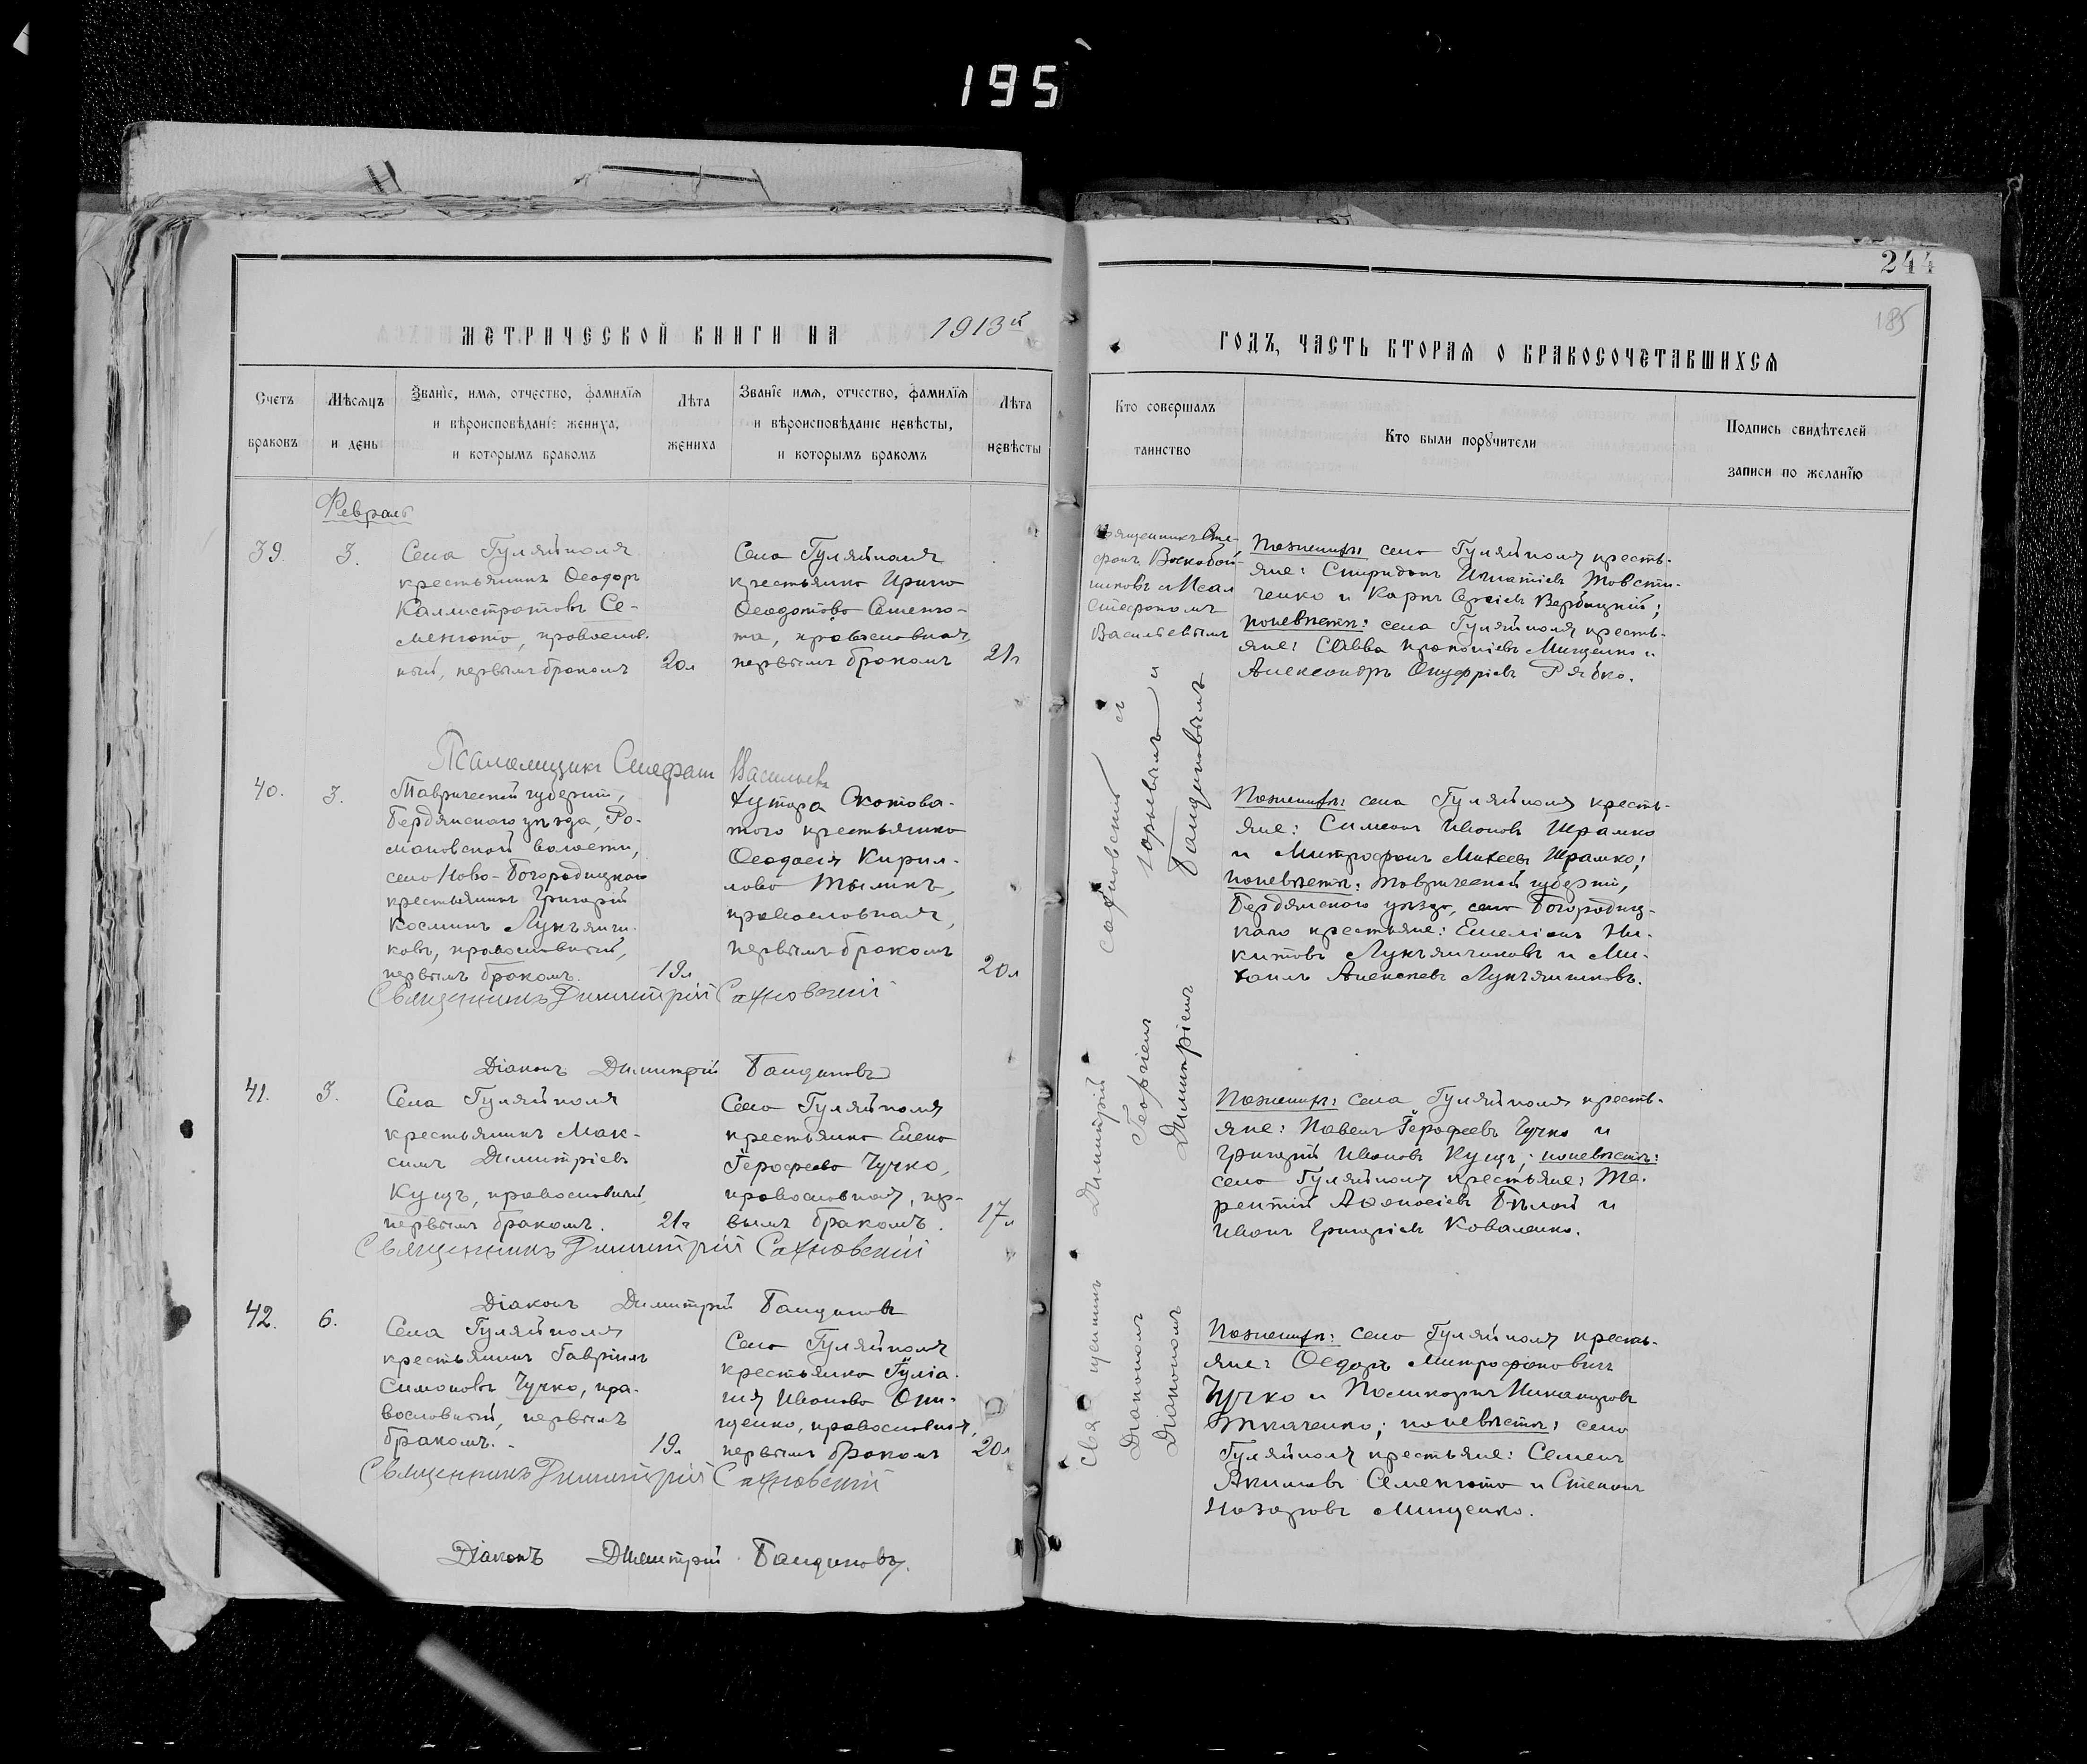 195
244
185
МЕТРИЧЕСКОЙ КНИГИ НА 1913й
ГОДЪ, ЧАСТЬ ВТОРАЯ О БРАКОСОЧЕТАВШИХСЯ
Счетъ
браковъ
Мѣсяцъ
и день
Званіе, имя, отчество, фамилія
и вѣроисповѣданіе жениха,
и которымъ бракомъ
Лѣта
жениха
Званіе имя, отчество, фамилія
и вѣроисповѣданіе невѣсты,
и которымъ бракомъ
Лѣта
невѣсты
Кто совершалъ
таинство
Кто были поручители
Подпись свидѣтелей
записи по желанію
Февраль
39.
3.
Села Гуляйполя
крестьянинъ Ѳеодоръ
Каллистратовъ Се-
менюта, православ-
ный, первымъ бракомъ
20л
Села Гуляйполя
крестьянка Ирина
Ѳеодотова
та, православная,
первымъ бракомъ
21л
Священникъ Сте-
фанъ Воскобой-
никовъ съ Псал
Стефаномъ
Васильевымъ
По женихѣ: села Гуляйполя кресть-
яне: Спиридонъ Игнатіевъ Товсти-
ченко и Карпъ Вербицкій;
по невѣстѣ: села Гуляйполя кресть-
яне: Савва Прокопіевъ Мищенко и
Александръ Онуфріевъ Рябко.
Псаломщикъ Стефанъ Васильевъ
40.
3.
Таврической губерніи,
Бердянскаго уѣзда, Ро-
мановской волости,
села Ново-Богородицкаго
крестьянинъ Григорій
Косминъ Лукьянчи-
ковъ, православный,
первымъ бракомъ.
19л
Хутора Скотова-
того крестьянка
Ѳеодосія Кирил-
лова
православная,
первымъ бракомъ
20л
По женихѣ: села Гуляйполя кресть-
яне: Симеонъ Ивановъ Шрамко
и Митрофанъ Михеевъ Шрамко;
по невѣстѣ: Таврической губерніи,
Бердянскаго уѣзда, села Богородиц-
каго крестьяне: Емеліанъ Ни-
китовъ Лукьянчиковъ и Ми-
хаилъ Алексѣевъ Лукьянчиковъ.
Священникъ Димитрій Сахновскій
Діаконъ Димитрій Бандиновъ
41.
3.
Села Гуляйполя
крестьянинъ Мак-
симъ Димитріевъ
Кущъ, православный,
первымъ бракомъ.
21л
Села Гуляйполя
крестьянка Елена
Іерофеева Чучко,
православная, пер-
вымъ бракомъ.
17л
По женихѣ: села Гуляйполя кресть-
яне: Павелъ Іерофеевъ Чучко и
Григорій Ивановъ Кущъ; по невѣстѣ:
села Гуляйполя крестьяне: Те-
рентій Аѳанасіевъ Бѣлой и
Иванъ Григоріевъ Коваленко.
Священникъ Димитрій Сахновскій
Діаконъ Димитрій Бандиновъ
42.
6.
Села Гуляйполя
крестьянинъ Гавріилъ
Симоновъ Чучко, пра-
вославный, первымъ
бракомъ.
19л
Села Гуляйполя
крестьянка Іуліа-
нія Иванова Они-
щенко, православная,
первымъ бракомъ
20л
По женихѣ: села Гуляйполя кресть-
яне: Ѳеодоръ Митрофановичъ
Чучко и Поликарпъ Никаноровъ
Ткаченко; по невѣстѣ: села
Гуляйполя крестьяне: Семенъ
Якимовъ Семенюта и Степанъ
Назаровъ Мищенко.
Священникъ Димитрій Сахновскій
Діаконъ Димитрій Бандиновъ.
Священникъ Димитрій Сахновскій съ
Діакономъ Георгіемъ и
Діакономъ Димитріемъ Бандиновымъ